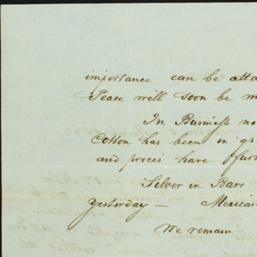 importance can be atta
Peace will soon be m
In Business no
Cotton has been in g
and prices have furt
Silver in Bars
yesterday — Mexican
We remain